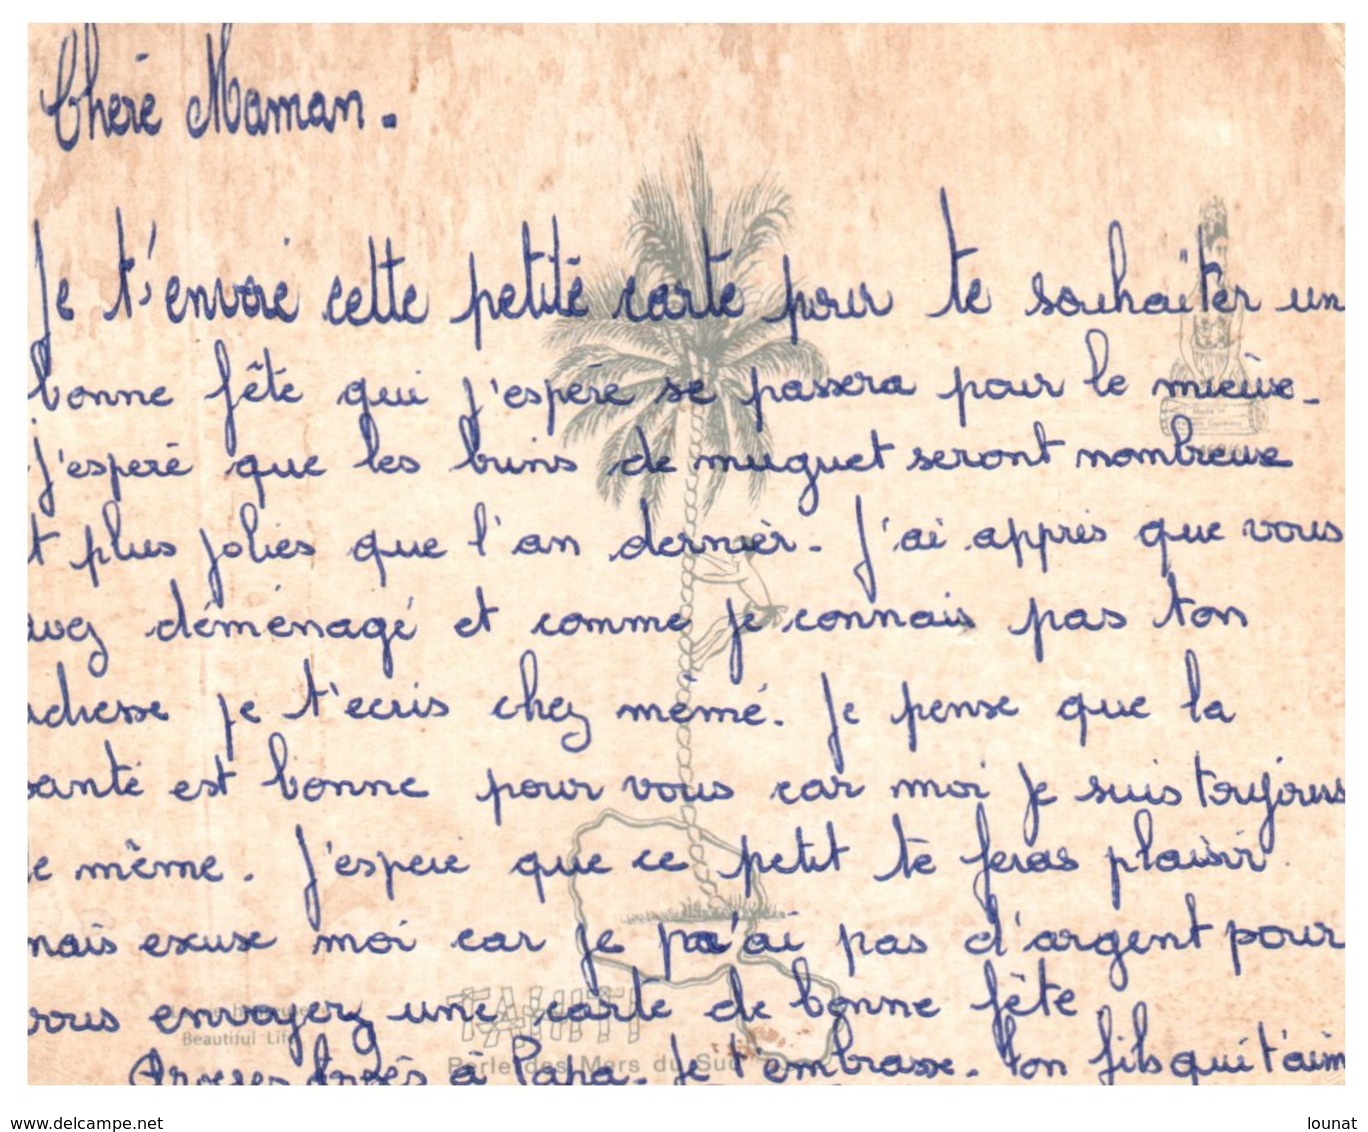 Cheré Maman.
Je t'envoie cette petite carte pour te souhaiter un
bonne fête qui j'espère se passera pour le mieux.
j'esperé que les brins de muguet seront nombreux
t plus jolies que l'an dernièr. J'ai appris que vous
avez déménagé et comme je connais pas ton
adresse je t'ecris chez mémé. Je pense que la
santé est bonne pour vous car moi je suis toujours
le même. J'esperé que ce petit te feras plaisir
mais excuse moi car je n'ai pas d'argent pour
vous envoyez une carte de bonne fête.
à Papa. Je t'embrasse. ton fils qui t'aim
TAHITI
Perle des Mers du Sud
Beautiful Life
Made in
www.delcampe.net
lounat